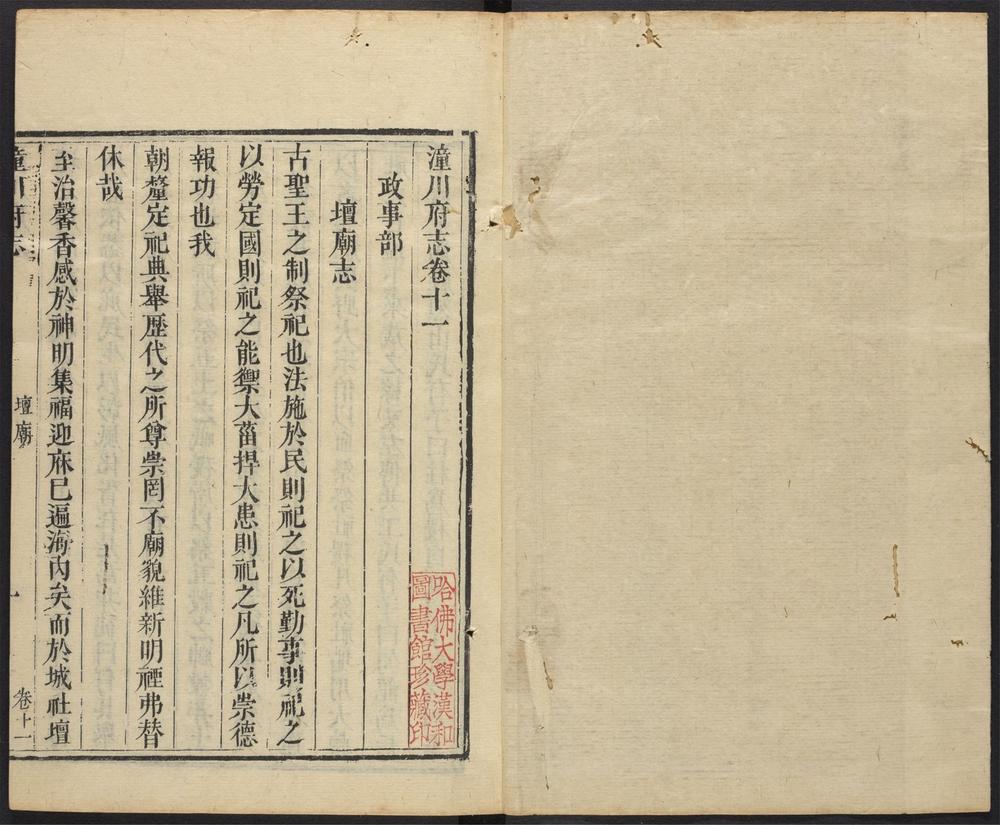 潼川府志卷十一
政事部
壇廟志
古聖王之制祭祀也法施於民則祀之以死勤事則祀之
以勞定國則祀之能禦大菑捍大患則祀之凡所以崇德
報功也我
朝釐定祀典舉歷代之所尊崇罔不廟貌維新明禋弗替
休哉
至治馨香感於神明集福迎庥已遍海内矣而於城社壇
潼川府志
壇廟
一
卷十一
哈佛大學漢和
圖書館珍藏印